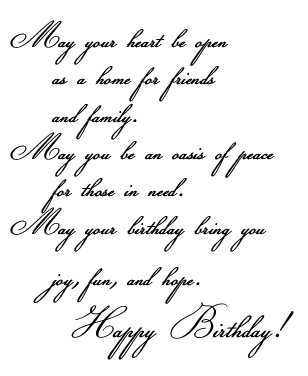 May your heart be open
as a home for friends
and family.
May you be an oasis of peace
for those in need.
May your birthday bring you
joy, fun, and hope.
Happy Birthday!